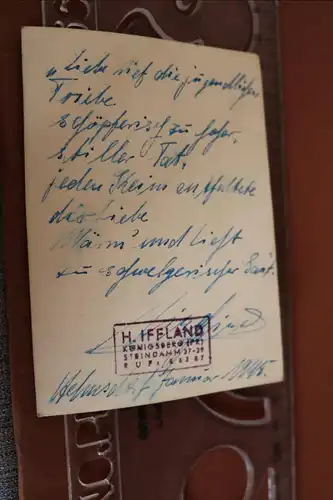 „Liebe rief die jugendlichen
Triebe
schöpferisch zu hoher,
stiller Tat,
jeden Keim entfaltete
die Liebe
Wärm' und Licht
zu schwelgerischer Saat.
H. IFFLAND
KÖNIGSBERG (PR)
STEINDAMM 37-39
RUF:
Januar 1945.